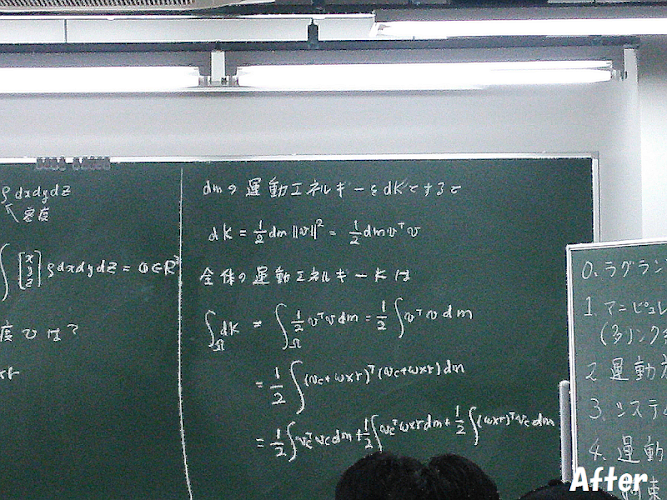 ρdxdydz
密度
∫ [x y z] ρdxdydz = 0 ∈ R³
度 v は?
dm の 運動エネルギーを dK とすると
dK = 1/2 dm ||v||² = 1/2 dm vᵀv
全体の運動エネルギー K は
∫_Ω dK = ∫_Ω 1/2 vᵀv dm = 1/2 ∫ vᵀv dm
= 1/2 ∫ (vc + ω×r)ᵀ (vc + ω×r) dm
= 1/2 ∫ vcᵀ vc dm + 1/2 ∫ vcᵀ ω×r dm + 1/2 ∫ (ω×r)ᵀ vc dm
0. ラグラン
1. マニピュレ
(多)リンク
2. 運動
3. システ
4. 運動
After